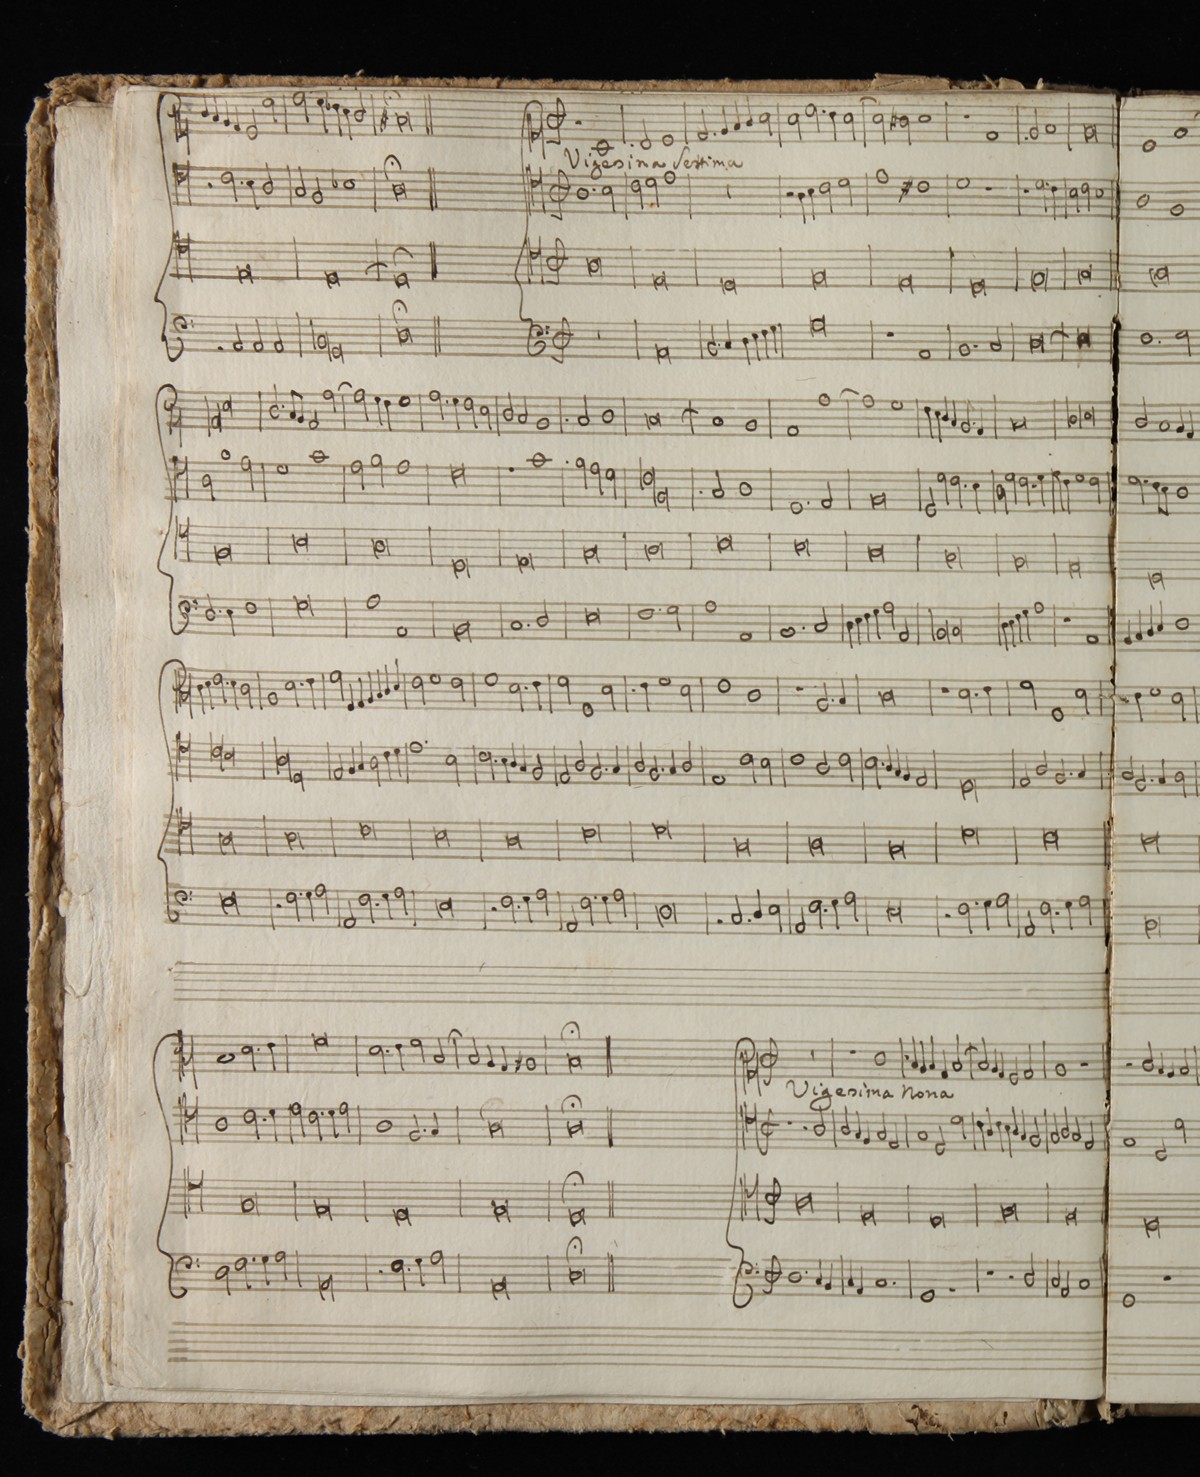 Vigesina Sestima
Vigesima Nona